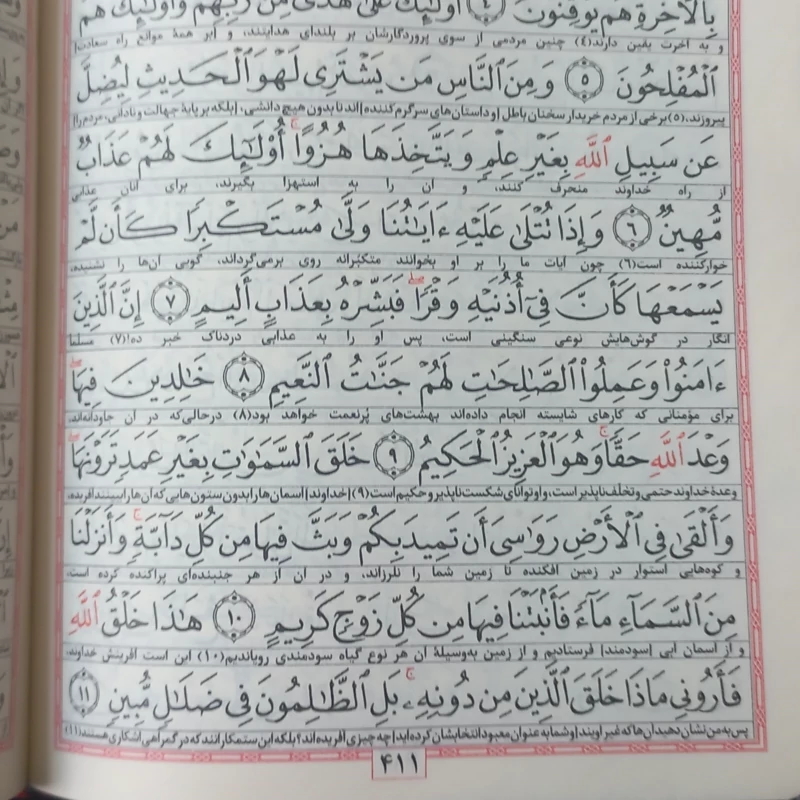 بِٱلۡأٓخِرَةِ هُمۡ يُوقِنُونَ ٤ أُوْلَٰٓئِكَ عَلَىٰ هُدٗى مِّن رَّبِّهِمۡ وَأُوْلَٰٓئِكَ هُمُ
و به آخرت یقین دارند(٤) چنین مردمی از سوی پروردگارشان بر بلندای هدایتند، و ابر همهٔ موانع راه سعادت|
ٱلۡمُفۡلِحُونَ ٥ وَمِنَ ٱلنَّاسِ مَن يَشۡتَرِي لَهۡوَ ٱلۡحَدِيثِ لِيُضِلَّ
پیروزند.(٥) برخی از مردم خریدار سخنان باطل |و داستان‌های سرگرم‌کننده |اند تا بدون هیچ دانشی، |بلکه بر پایهٔ جهالت و نادانی، مردم را|
عَن سَبِيلِ ٱللَّهِ بِغَيۡرِ عِلۡمٖ وَيَتَّخِذَهَا هُزُوًاۚ أُوْلَٰٓئِكَ لَهُمۡ عَذَابٞ
از راه خداوند منحرف کنند، و آن را به استهزا بگیرند، برای آنان عذابی
مُّهِينٞ ٦ وَإِذَا تُتۡلَىٰ عَلَيۡهِ ءَايَٰتُنَا وَلَّىٰ مُسۡتَكۡبِرٗا كَأَن لَّمۡ
خوارکننده است(٦) چون آیات ما را بر او بخوانند متکبّرانه روی برمی‌گرداند، گویی آن‌ها را نشنیده،
يَسۡمَعۡهَا كَأَنَّ فِيٓ أُذُنَيۡهِ وَقۡرٗاۖ فَبَشِّرۡهُ بِعَذَابٍ أَلِيمٍ ٧ إِنَّ ٱلَّذِينَ
انگار در گوش‌هایش نوعی سنگینی است، پس او را به عذابی دردناک خبر ده!(٧) مسلماً
ءَامَنُواْ وَعَمِلُواْ ٱلصَّٰلِحَٰتِ لَهُمۡ جَنَّٰتُ ٱلنَّعِيمِ ٨ خَٰلِدِينَ فِيهَاۖ
برای مؤمنانی که کارهای شایسته انجام داده‌اند بهشت‌های پُرنعمت خواهد بود(٨) درحالی‌که در آن جاودانه‌اند،
وَعۡدَ ٱللَّهِ حَقّٗاۚ وَهُوَ ٱلۡعَزِيزُ ٱلۡحَكِيمُ ٩ خَلَقَ ٱلسَّمَٰوَٰتِ بِغَيۡرِ عَمَدٖ تَرَوۡنَهَاۖ
وعدهٔ خداوند حتمی و تخلف‌ناپذیر است، و او توانای شکست‌ناپذیر و حکیم است(٩) |خداوند| آسمان‌ها را بدون ستون‌هایی که آن‌ها را ببینند آفریده،
وَأَلۡقَىٰ فِي ٱلۡأَرۡضِ رَوَٰسِيَ أَن تَمِيدَ بِكُمۡ وَبَثَّ فِيهَا مِن كُلِّ دَآبَّةٖۚ وَأَنزَلۡنَا
و کوه‌هایی استوار در زمین افکنده تا زمین شما را نلرزاند، و در آن از هر جنبنده‌ای پراکنده کرده است،
مِنَ ٱلسَّمَآءِ مَآءٗ فَأَنۢبَتۡنَا فِيهَا مِن كُلِّ زَوۡجٖ كَرِيمٍ ١٠ هَٰذَا خَلۡقُ ٱللَّهِ
و از آسمان آبی |سودمند| فرستادیم و از زمین به‌وسیلهٔ آن هر نوع گیاه سودمندی رویاندیم(١٠) این است آفرینش خداوند،
فَأَرُونِي مَاذَا خَلَقَ ٱلَّذِينَ مِن دُونِهِۦۚ بَلِ ٱلظَّٰلِمُونَ فِي ضَلَٰلٖ مُّبِينٖ ١١
پس به من نشان دهید آن‌ها که غیر اویند |و شما به عنوان معبود انتخابشان کرده‌اید| چه چیزی آفریده‌اند؟ بلکه این ستمکارانند که در گمراهی آشکاری هستند(١١)
٤١١